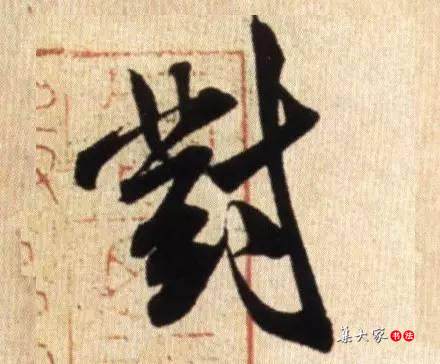 對
集大家书法